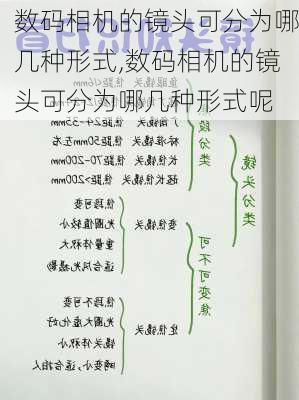 数码相机的镜头可分为哪
几种形式,数码相机的镜
头可分为哪几种形式呢
段分类
标准镜头 焦距50mm左右
长焦镜头 焦距70-200mm
焦距>200mm
镜头分类
可不可变焦
变焦镜头
焦段可变
光圈值较小
重量体积大
适合风光摄影
定焦镜头
焦段不可变
光圈大虚化好
镜头体积小
畸变小,适合拍人